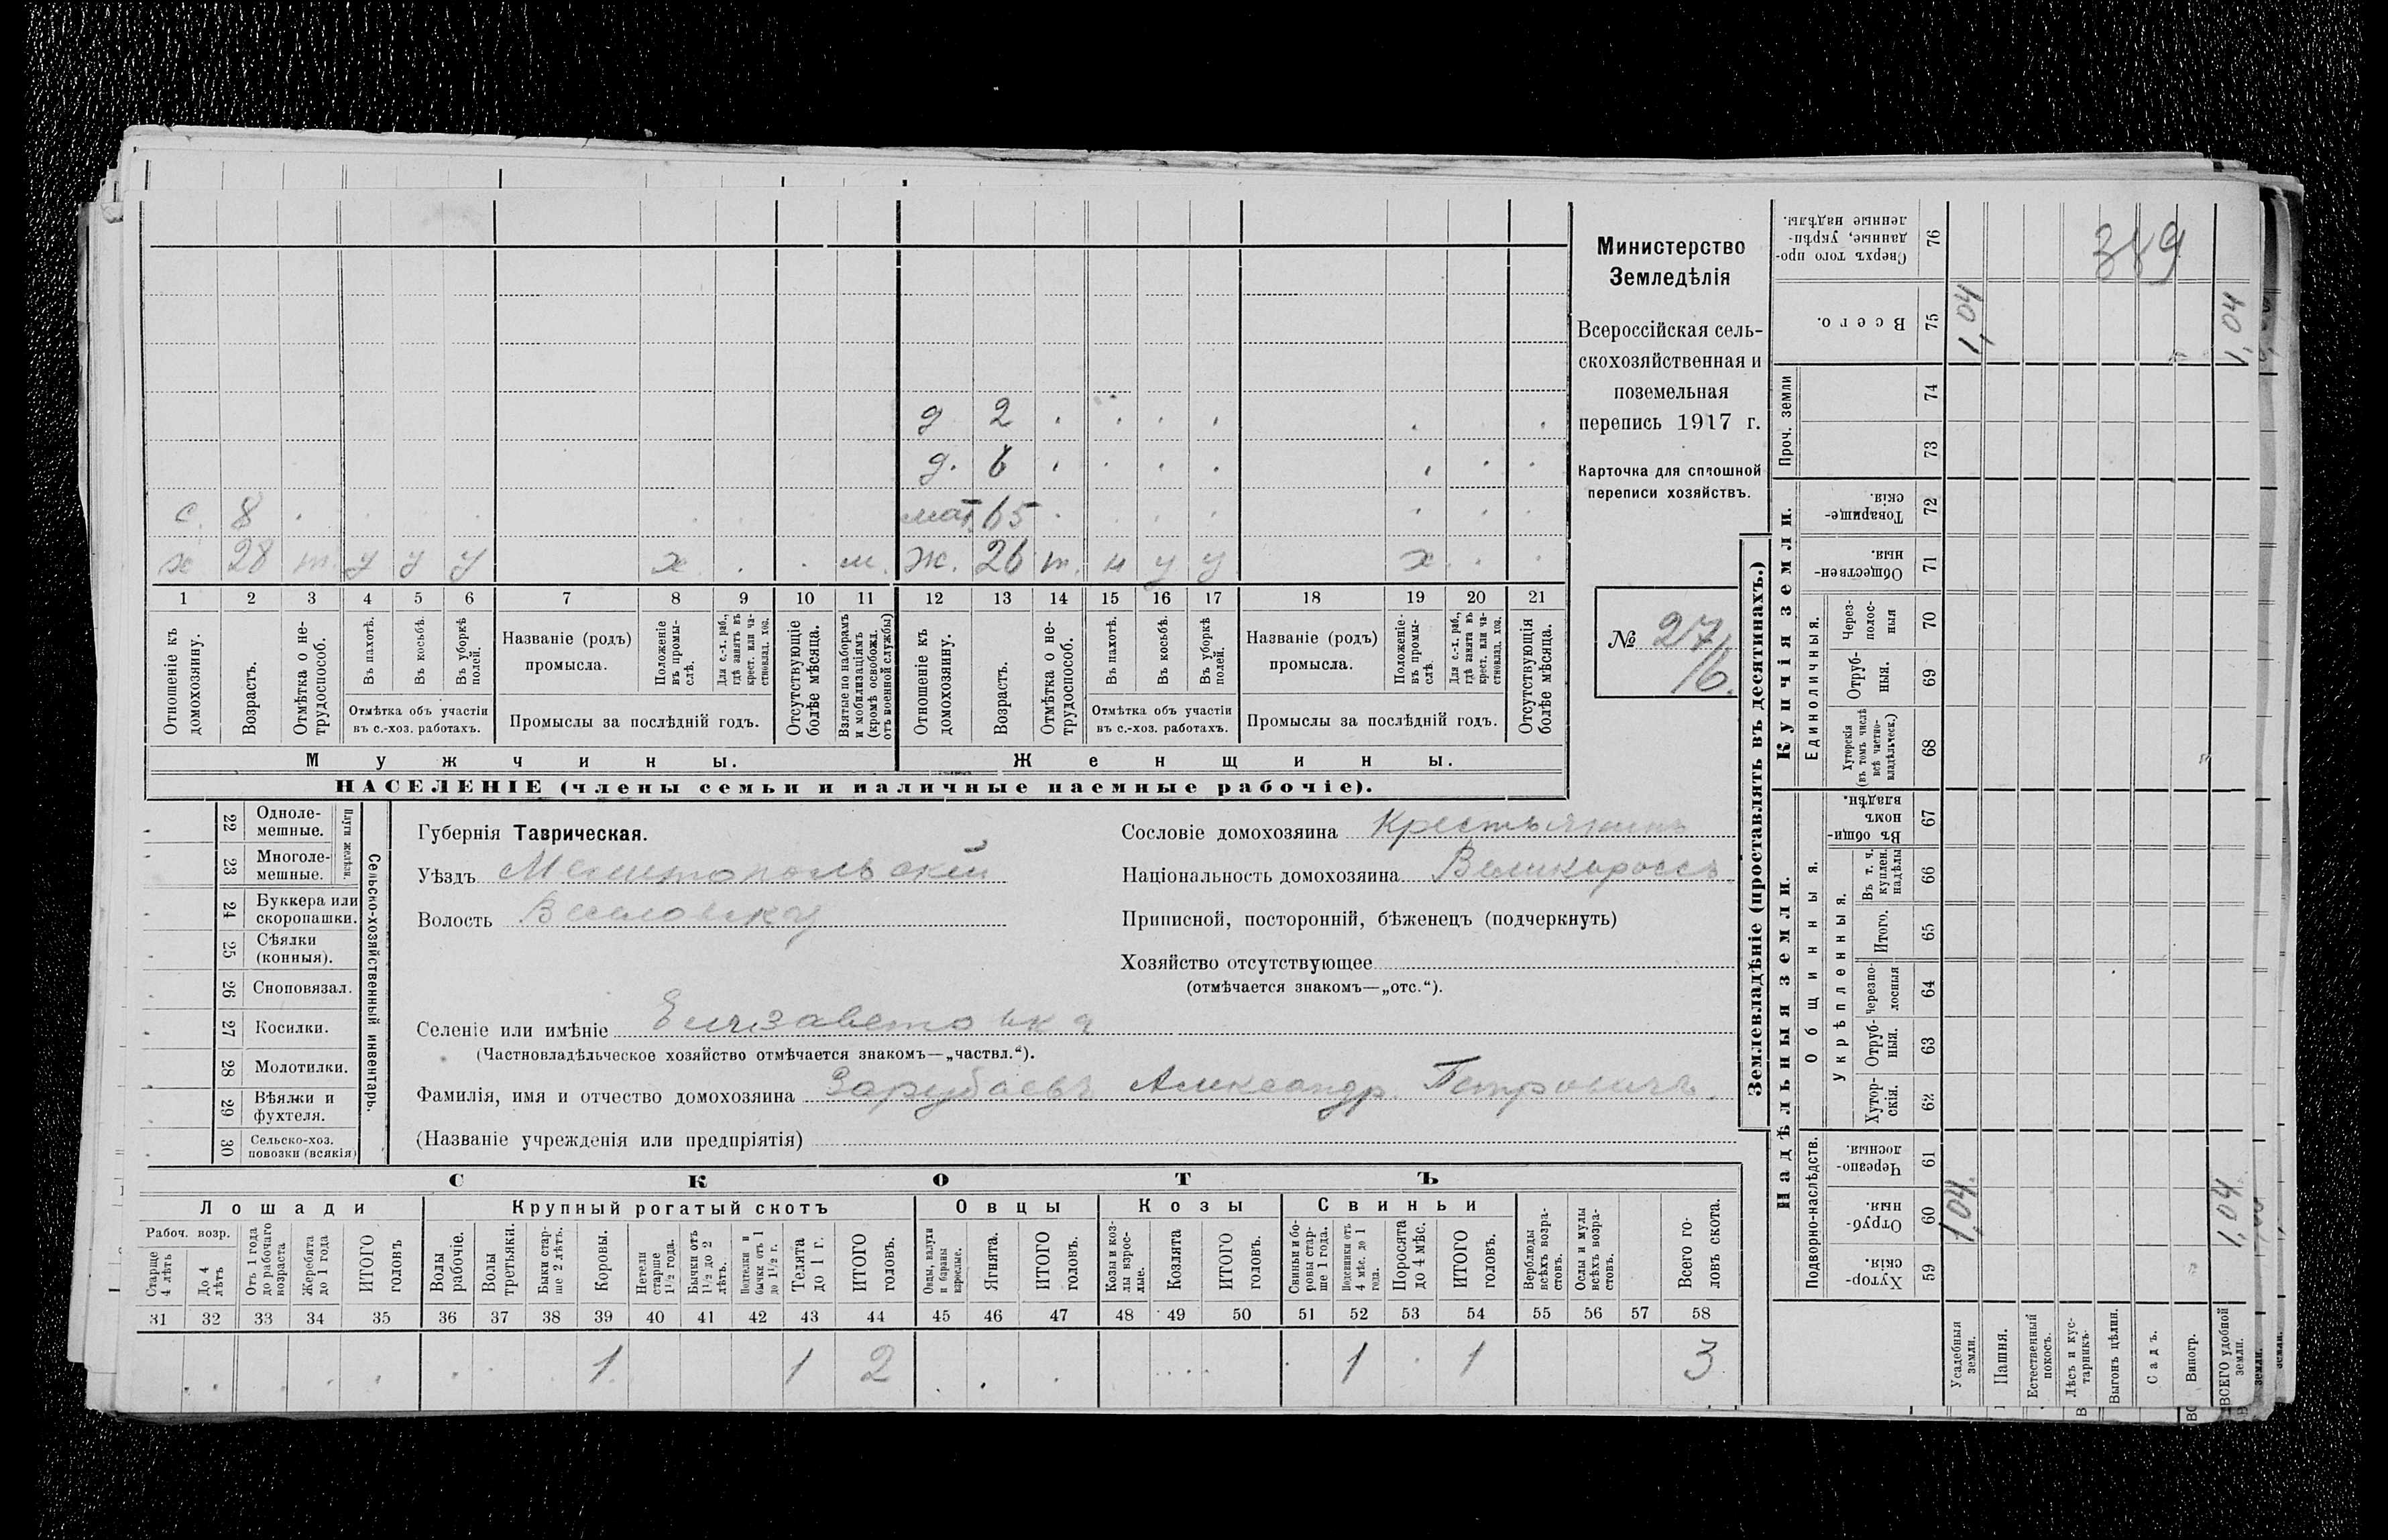 д. 2 . . . . . .
д. 6 . . . . . . .
с. 8 . . . . мат. 65 . . . . . . .
х 28 т. у у у х . . м. ж. 26 т. н у у х . .
1 2 3 4 5 6 7 8 9 10 11 12 13 14 15 16 17 18 19 20 21
Отношеніе къ домохозяину.
Возрастъ.
Отмѣтка о не-трудоспособ.
Въ пахотѣ.
Въ косьбѣ.
Въ уборкѣ полей.
Отмѣтка объ участіи
въ с.-хоз. работахъ.
Названіе (родъ)
промысла.
Положеніе въ промы-слѣ.
Для с.-х. раб., гдѣ занятъ въ крест. или ча-стновлад. хоз.
Промыслы за послѣдній годъ.
Отсутствующіе болѣе мѣсяца.
Взятые по наборамъ и мобилизаціямъ (кромѣ освобожд. отъ военной службы)
Отношеніе къ домохозяину.
Возрастъ.
Отмѣтка о не-трудоспособ.
Въ пахотѣ.
Въ косьбѣ.
Въ уборкѣ полей.
Отмѣтка объ участіи
въ с.-хоз. работахъ.
Названіе (родъ)
промысла.
Положеніе въ промы-слѣ.
Для с.-х. раб., гдѣ занята въ крест. или ча-стновлад. хоз.
Промыслы за послѣдній годъ.
Отсутствующія болѣе мѣсяца.
Мужчины.
Женщины.
НАСЕЛЕНІЕ (члены семьи и наличные наемные рабочіе).
Министерство
Земледѣлія
Всероссійская сель-
скохозяйственная и
поземельная
перепись 1917 г.
Карточка для сплошной
переписи хозяйствъ.
№ 27/6.
22 Одноле-мешные.
23 Многоле-мешные.
Плуги желѣзн.
24 Буккера или скоропашки.
25 Сѣялки (конныя).
26 Сноповязал.
27 Косилки.
28 Молотилки.
29 Вѣялки и фухтеля.
30 Сельско-хоз. повозки (всякія)
Сельско-хозяйственный инвентарь.
Губернія Таврическая.
Уѣздъ Мелитопольскій
Волость Веселовская
Селеніе или имѣніе Елизаветовка
(Частновладѣльческое хозяйство отмѣчается знакомъ—„частвл.“).
Фамилія, имя и отчество домохозяина Зарубаевъ Александр. Петровичъ.
(Названіе учрежденія или предпріятія)
Сословіе домохозяина Крестьянинъ
Національность домохозяина Великороссъ
Приписной, посторонній, бѣженецъ (подчеркнуть)
Хозяйство отсутствующее
(отмѣчается знакомъ—„отс.“).
СКОТЪ
Лошади
Рабоч. возр.
Старше 4 лѣтъ
До 4 лѣтъ
Отъ 1 года до рабочаго возраста
Жеребята до 1 года
ИТОГО головъ
Крупный рогатый скотъ
Волы рабочіе.
Волы третьяки.
Быки стар-ше 2 лѣтъ.
Коровы.
Нетели старше 1 1/2 года.
Бычки отъ 1 1/2 до 2 лѣтъ.
Подтелки и бычки отъ 1 до 1 1/2 г.
Телята до 1 г.
ИТОГО головъ.
Овцы
Овцы, валухи и бараны взрослые.
Ягнята.
ИТОГО головъ.
Козы
Козы и коз-лы взрос-лые.
Козлята
ИТОГО головъ.
Свиньи
Свиньи и бо-ровы стар-ше 1 года.
Подсвинки отъ 4 мѣс. до 1 года.
Поросята до 4 мѣс.
ИТОГО головъ.
Верблюды всѣхъ возра-стовъ.
Ослы и мулы всѣхъ возра-стовъ.
Всего го-ловъ скота.
31 32 33 34 35 36 37 38 39 40 41 42 43 44 45 46 47 48 49 50 51 52 53 54 55 56 57 58
1 1 2 1 1 3
Землевладѣніе (проставлять въ десятинахъ.)
Сверхъ того про-данные, укрѣп-ленные надѣлы. 76
389
Всего. 75 1,04 1,04
Проч. земли
74
73
Купчія земли.
Товарище-скія. 72
Обществен-ныя. 71
Единоличныя.
Через-полос-ныя 70
Отруб-ныя. 69
Хуторскія (въ томъ числѣ всѣ частно-владѣльческ.) 68
Надѣльныя земли.
Общинныя.
Въ общи-номъ владѣн. 67
Укрѣпленныя.
Въ т. ч. куплен. надѣлы 66
Итого. 65
Черезпо-лосныя 64
Отруб-ныя. 63
Хутор-скія. 62
Подворно-наслѣдств.
Черезпо-лосныя. 61
Отруб-ныя. 60 1,04. 1,04.
Хутор-скія. 59
Усадебныя земли.
Пашня.
Естественный покосъ.
Лѣсъ и кус-тарникъ.
Выгонъ цѣлин.
Садъ.
Виногр.
ВСЕГО удобной земли.